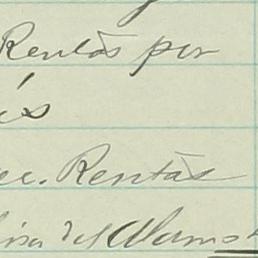 Rentas por
és
ec. Rentas
del Alamo